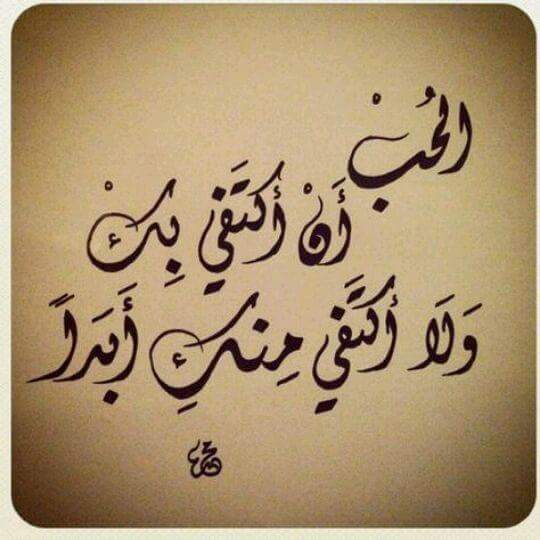 الحُبْ
أَنْ أَكتَفي بِكْ
وَلَا أَكتَفي مِنكِ أَبَدَاً